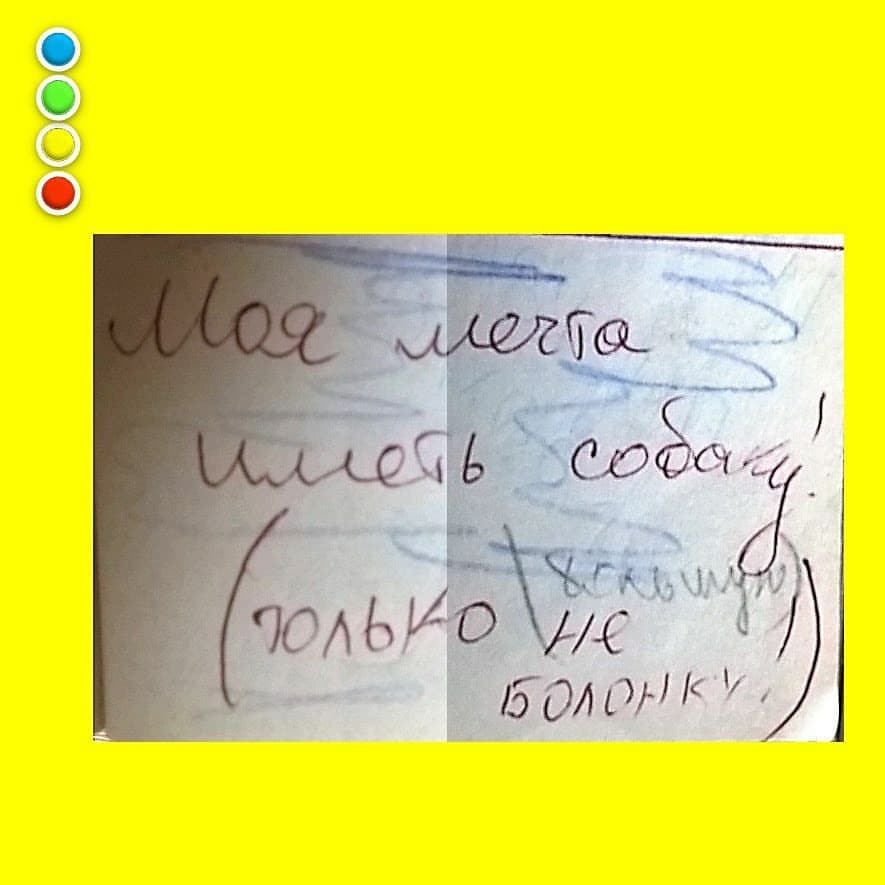 Моя мечта
иметь собаку!
(только (большую)
не
болонку.)